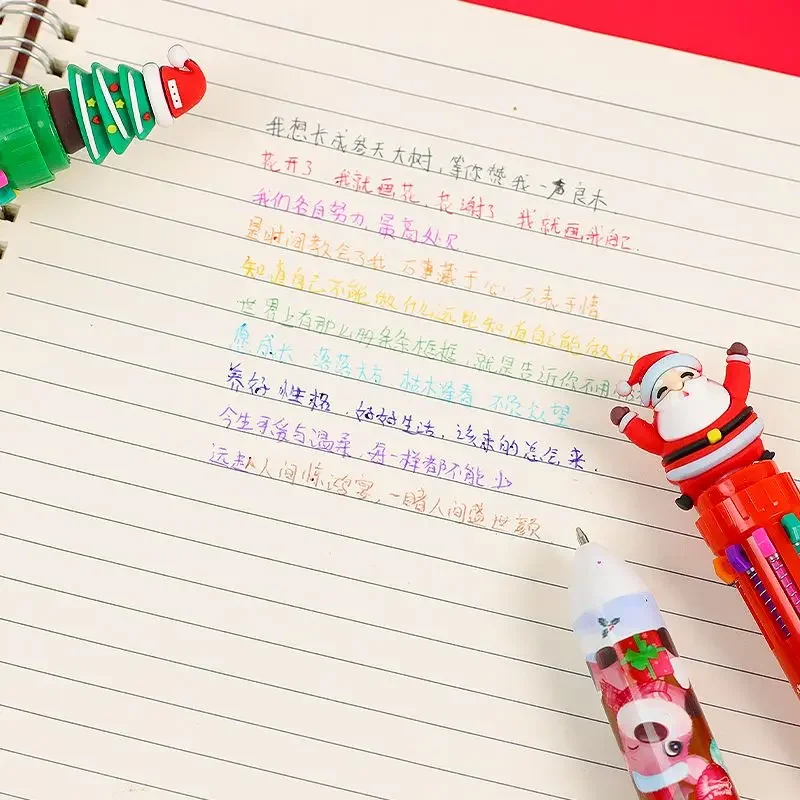 我想长成参天大树,等你赞我一声良木.
花开了 我就画花,花谢了 我就画我自己.
我们各自努力,最高处见
是时间教会了我 万事藏于心,不表于情
知道自己不能做什么远比知道自己能做什
世界上有那么多条条框框,就是告诉你不用
愿成长 落落大方 枯木逢春 不负众望
养好性格,好好生活,该来的总会来.
今生 与温柔,每一样都不能少
远赴人间惊鸿宴,一睹人间盛世颜